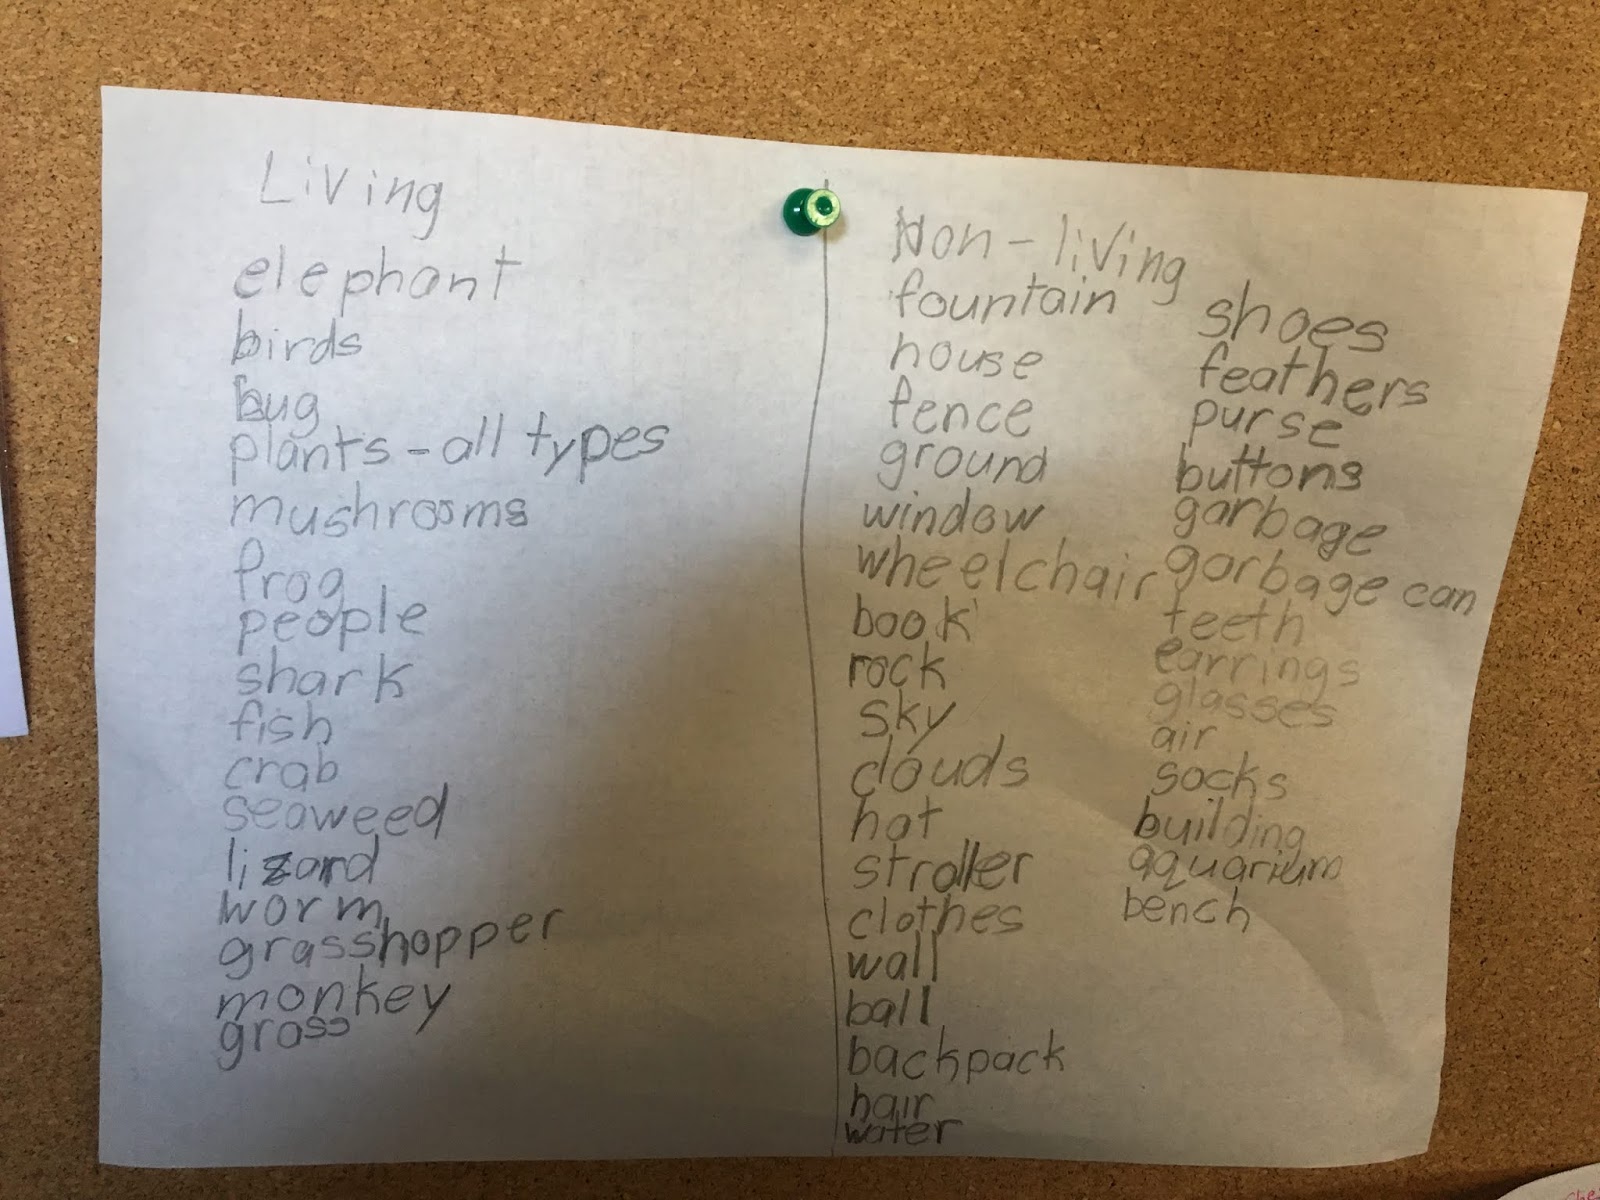 Living
elephant
birds
bug
plants - all types
mushrooms
frog
people
shark
fish
crab
seaweed
lizard
worm
grasshopper
monkey
grass
Non-living
fountain
house
fence
ground
window
wheelchair
book
rock
sky
clouds
hat
stroller
clothes
wall
ball
backpack
hair
water
shoes
feathers
purse
buttons
garbage
garbage can
teeth
earrings
glasses
air
socks
building
aquarium
bench